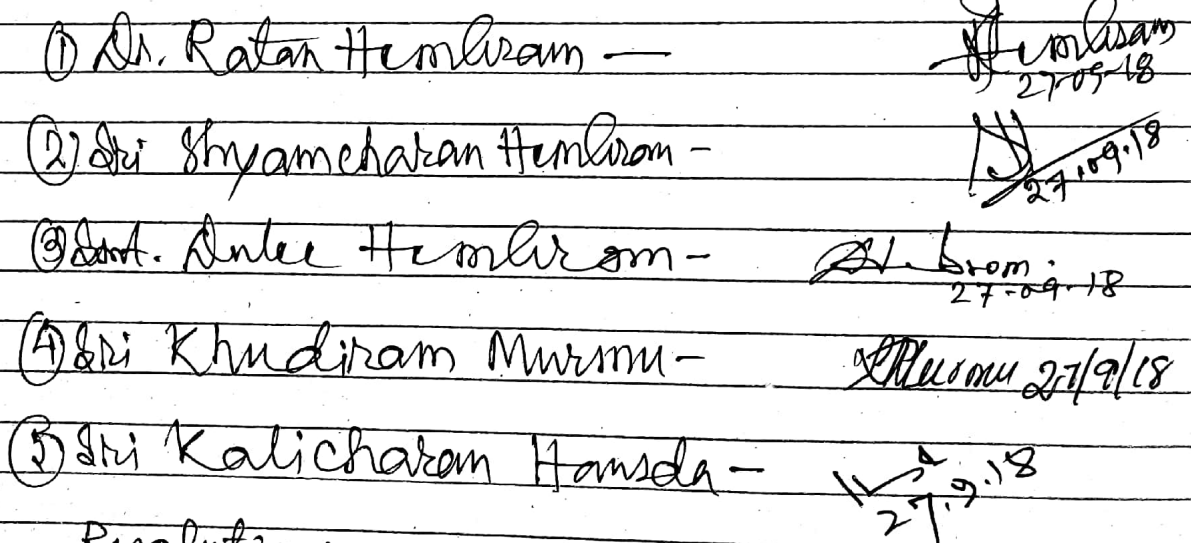 ① Dr. Ratan Hembram — Hembram 27-09-18
② Sri Shyamcharan Hembrom - 27.09.18
③ Smt. Dulee Hembrom - 27-09-18
④ Sri Khudiram Murmu - KMurmu 27/9/18
⑤ Sri Kalicharan Hansda - 27.9.18